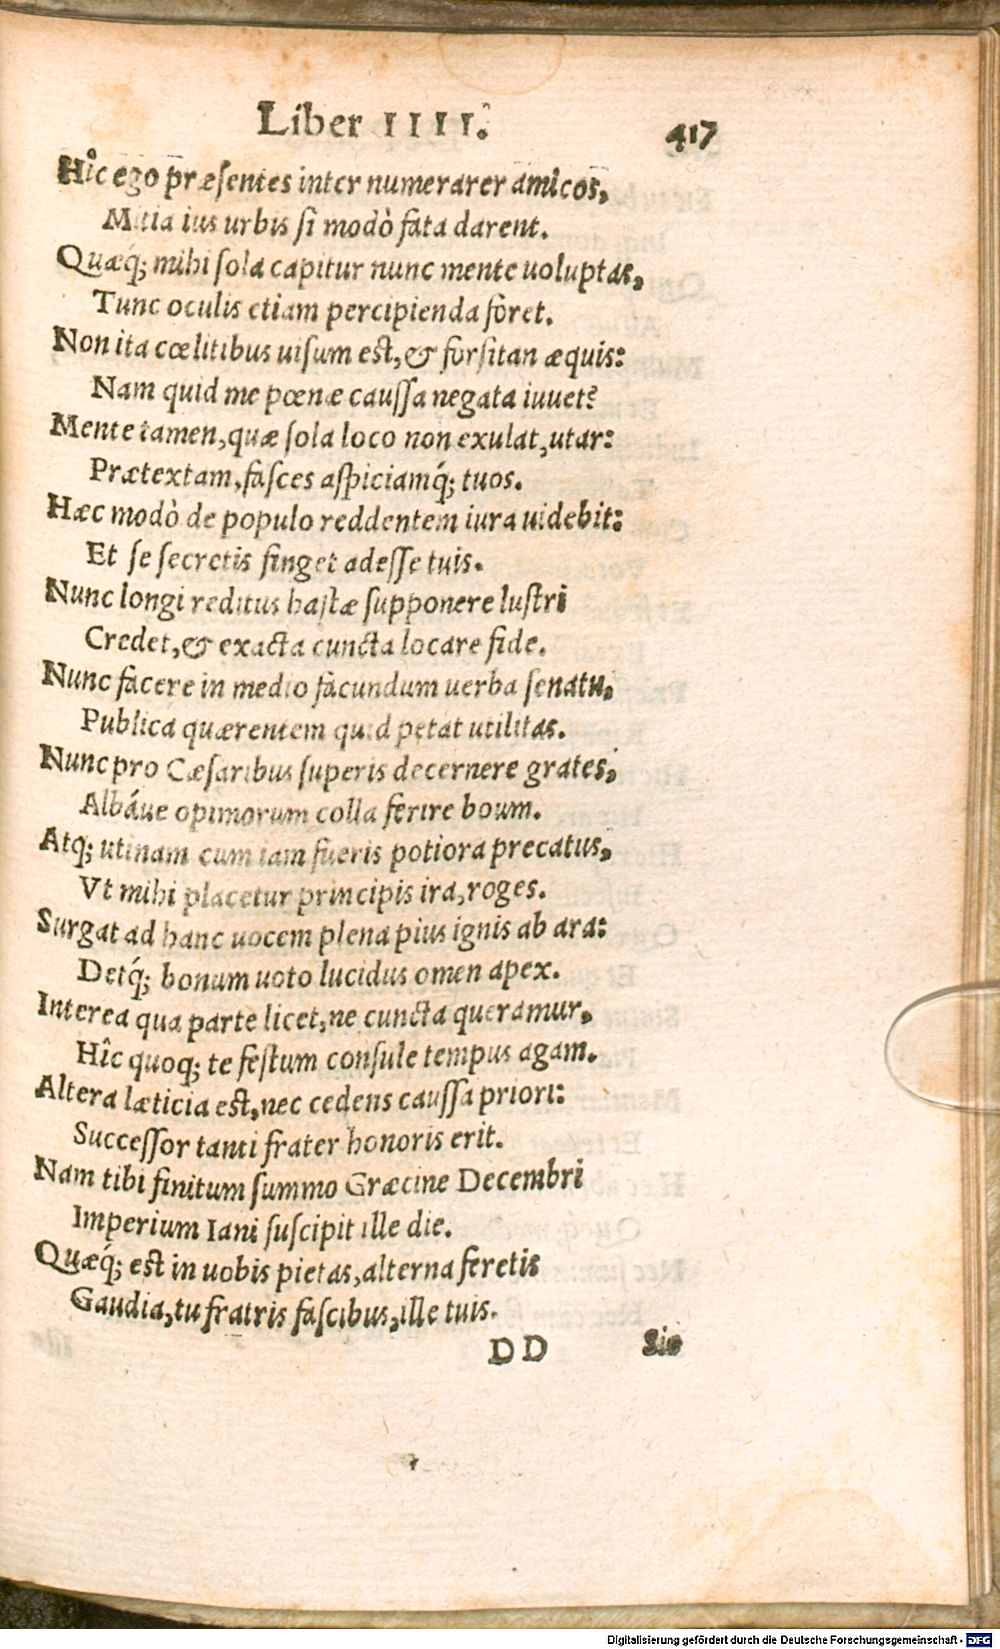 Liber IIII. 417
Hîc ego præſentes inter numerarer amicos,
Mitia ius urbis ſi modò fata darent.
Quæq́; mihi ſola capitur nunc mente uoluptas,
Tunc oculis etiam percipienda foret.
Non ita cœlitibus uiſum eſt, & forſitan æquis:
Nam quid me pœnæ cauſſa negata iuuet?
Mente tamen, quæ ſola loco non exulat, utar:
Prætextam, faſces aſpiciamq́; tuos.
Hæc modò de populo reddentem iura uidebit:
Et ſe ſecretis finget adeſſe tuis.
Nunc longi reditus haſtæ ſupponere luſtri
Credet, & exacta cuncta locare fide.
Nunc facere in medio facundum uerba ſenatu,
Publica quærentem quid petat utilitas.
Nunc pro Cæſaribus ſuperis decernere grates,
Albáue opimorum colla ferire boum.
Atq; utinam cum iam fueris potiora precatus,
Vt mihi placetur principis ira, roges.
Surgat ad hanc uocem plena pius ignis ab ara:
Detq́; bonum uoto lucidus omen apex.
Interea qua parte licet, ne cuncta queramur,
Hîc quoq; te feſtum conſule tempus agam.
Altera læticia eſt, nec cedens cauſſa priori:
Succeſſor tanti frater honoris erit.
Nam tibi finitum ſummo Græcine Decembri
Imperium Iani ſuſcipit ille die.
Quæq́; est in uobis pietas, alterna feretis
Gaudia, tu fratris faſcibus, ille tuis.
DD Sic
Digitalisierung gefördert durch die Deutsche Forschungsgemeinschaft - DFG